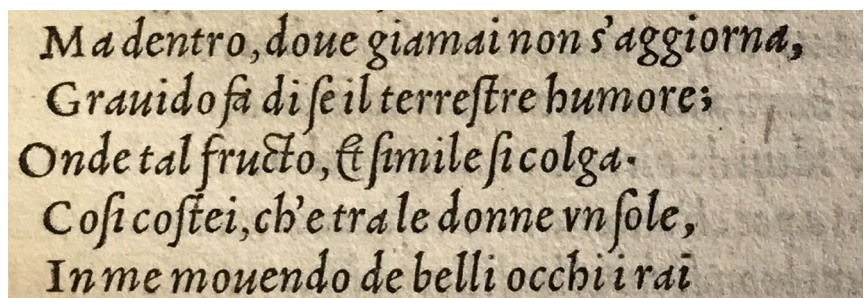 Ma dentro, doue giamai non s'aggiorna,
Grauido fa di ſe il terreſtre humore;
Onde tal fructo, & ſimile ſi colga.
Coſi coſtei, ch'e tra le donne vn ſole,
In me mouendo de belli occhi i rai